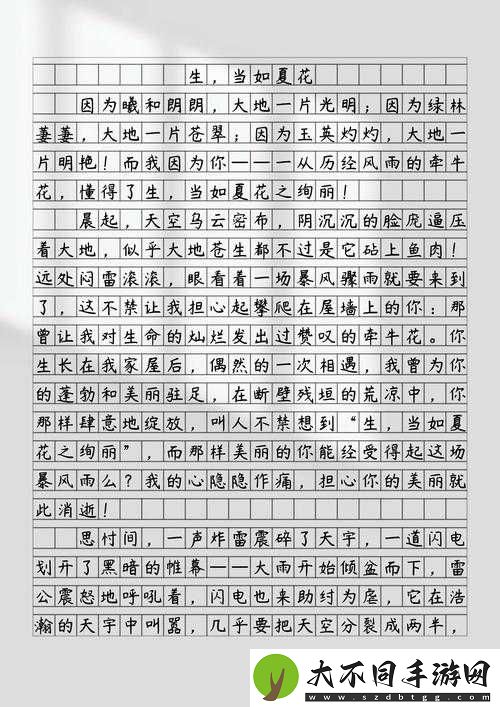 生，当如夏花
因为曦和朗朗，大地一片光明；因为绿林
萋萋，大地一片苍翠；因为玉英灼灼，大地一
片明艳！而我因为你———从历经风雨的牵牛
花，懂得了生，当如夏花之绚丽！
晨起，天空乌云密布，阴沉沉的脸庞逼压
着大地，似乎大地苍生都不过是它砧上鱼肉！
远处闷雷滚滚，眼看着一场暴风骤雨就要来到
了，这不禁让我担心起攀爬在屋墙上的你：那
曾让我对生命的灿烂发出过赞叹的牵牛花。你
生长在我家屋后，偶然的一次相遇，我曾为你
的蓬勃和美丽驻足，在断壁残垣的荒凉中，你
那样肆意地绽放，叫人不禁想到“生，当如夏
花之绚丽”，而那样美丽的你能经受得起这场
暴风雨么？我的心隐隐作痛，担心你的美丽就
此消逝！
思忖间，一声炸雷震碎了天宇，一道闪电
划开了黑暗的帷幕——大雨开始倾盆而下，雷
公震怒地呼吼着，闪电也来助纣为虐，它在浩
瀚的天宇中叫嚣，几乎要把天空分裂成两半，
大不同手游网
www.szdbtgg.com